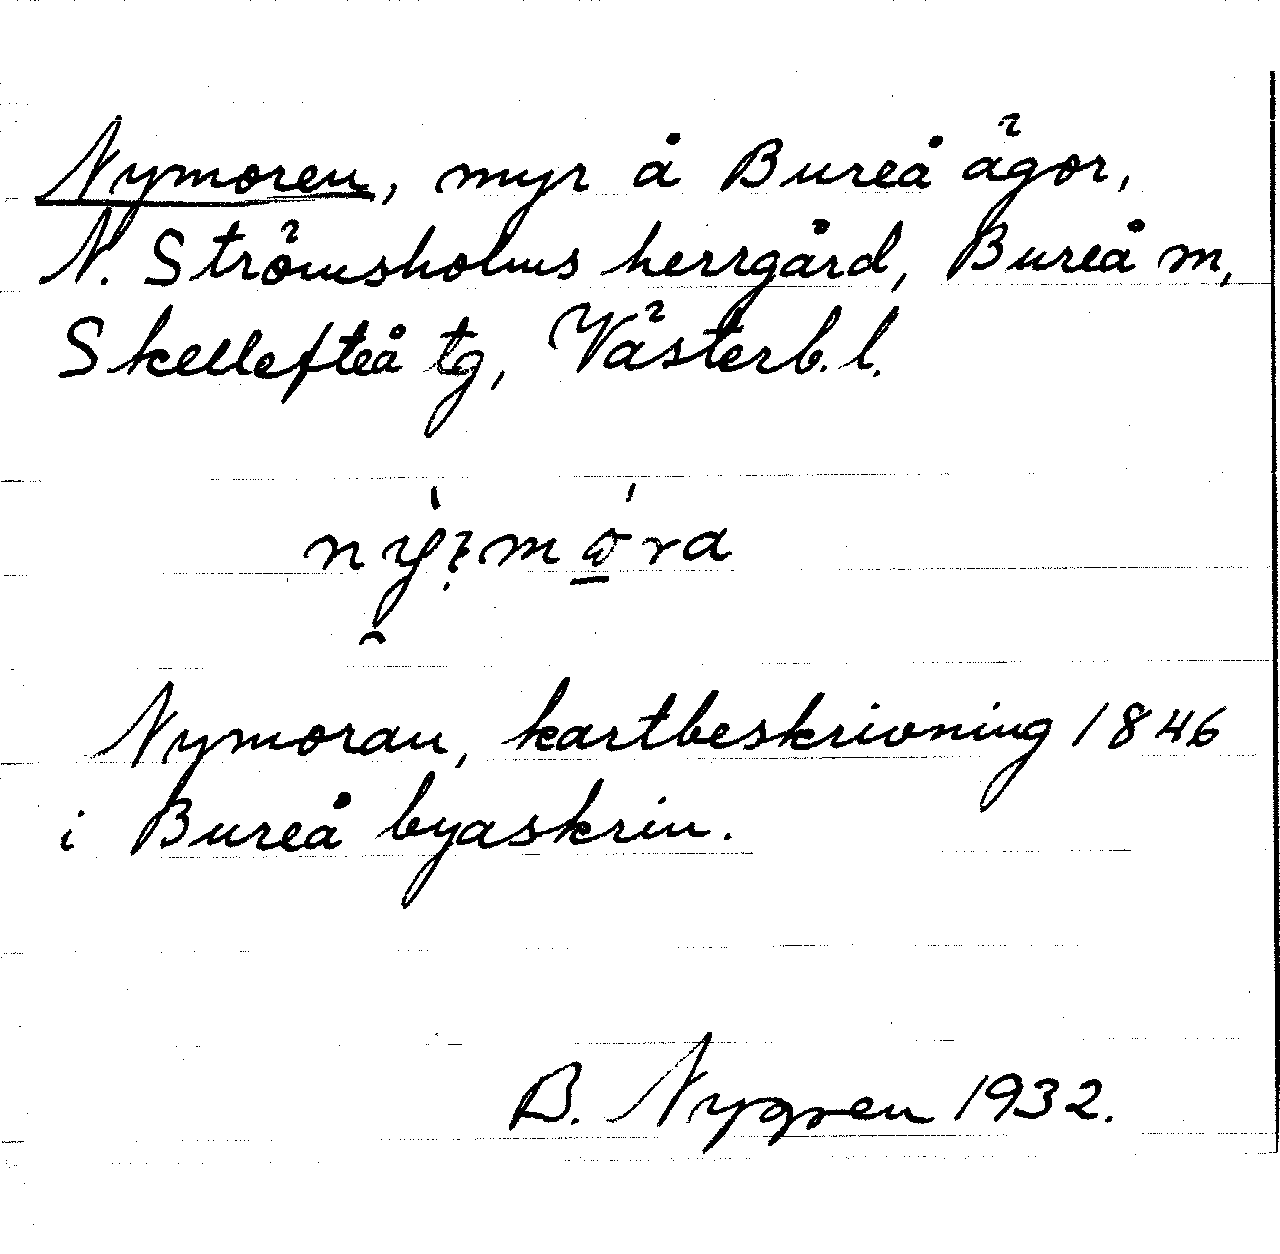 Nymoren, myr å Bureå ägor,
N. Strömsholms herrgård, Bureå m,
Skellefteå tg, Västerb. l.
Nymoran, kartbeskrivning 1846
i Bureå byaskrin.
B. Nygren 1932.